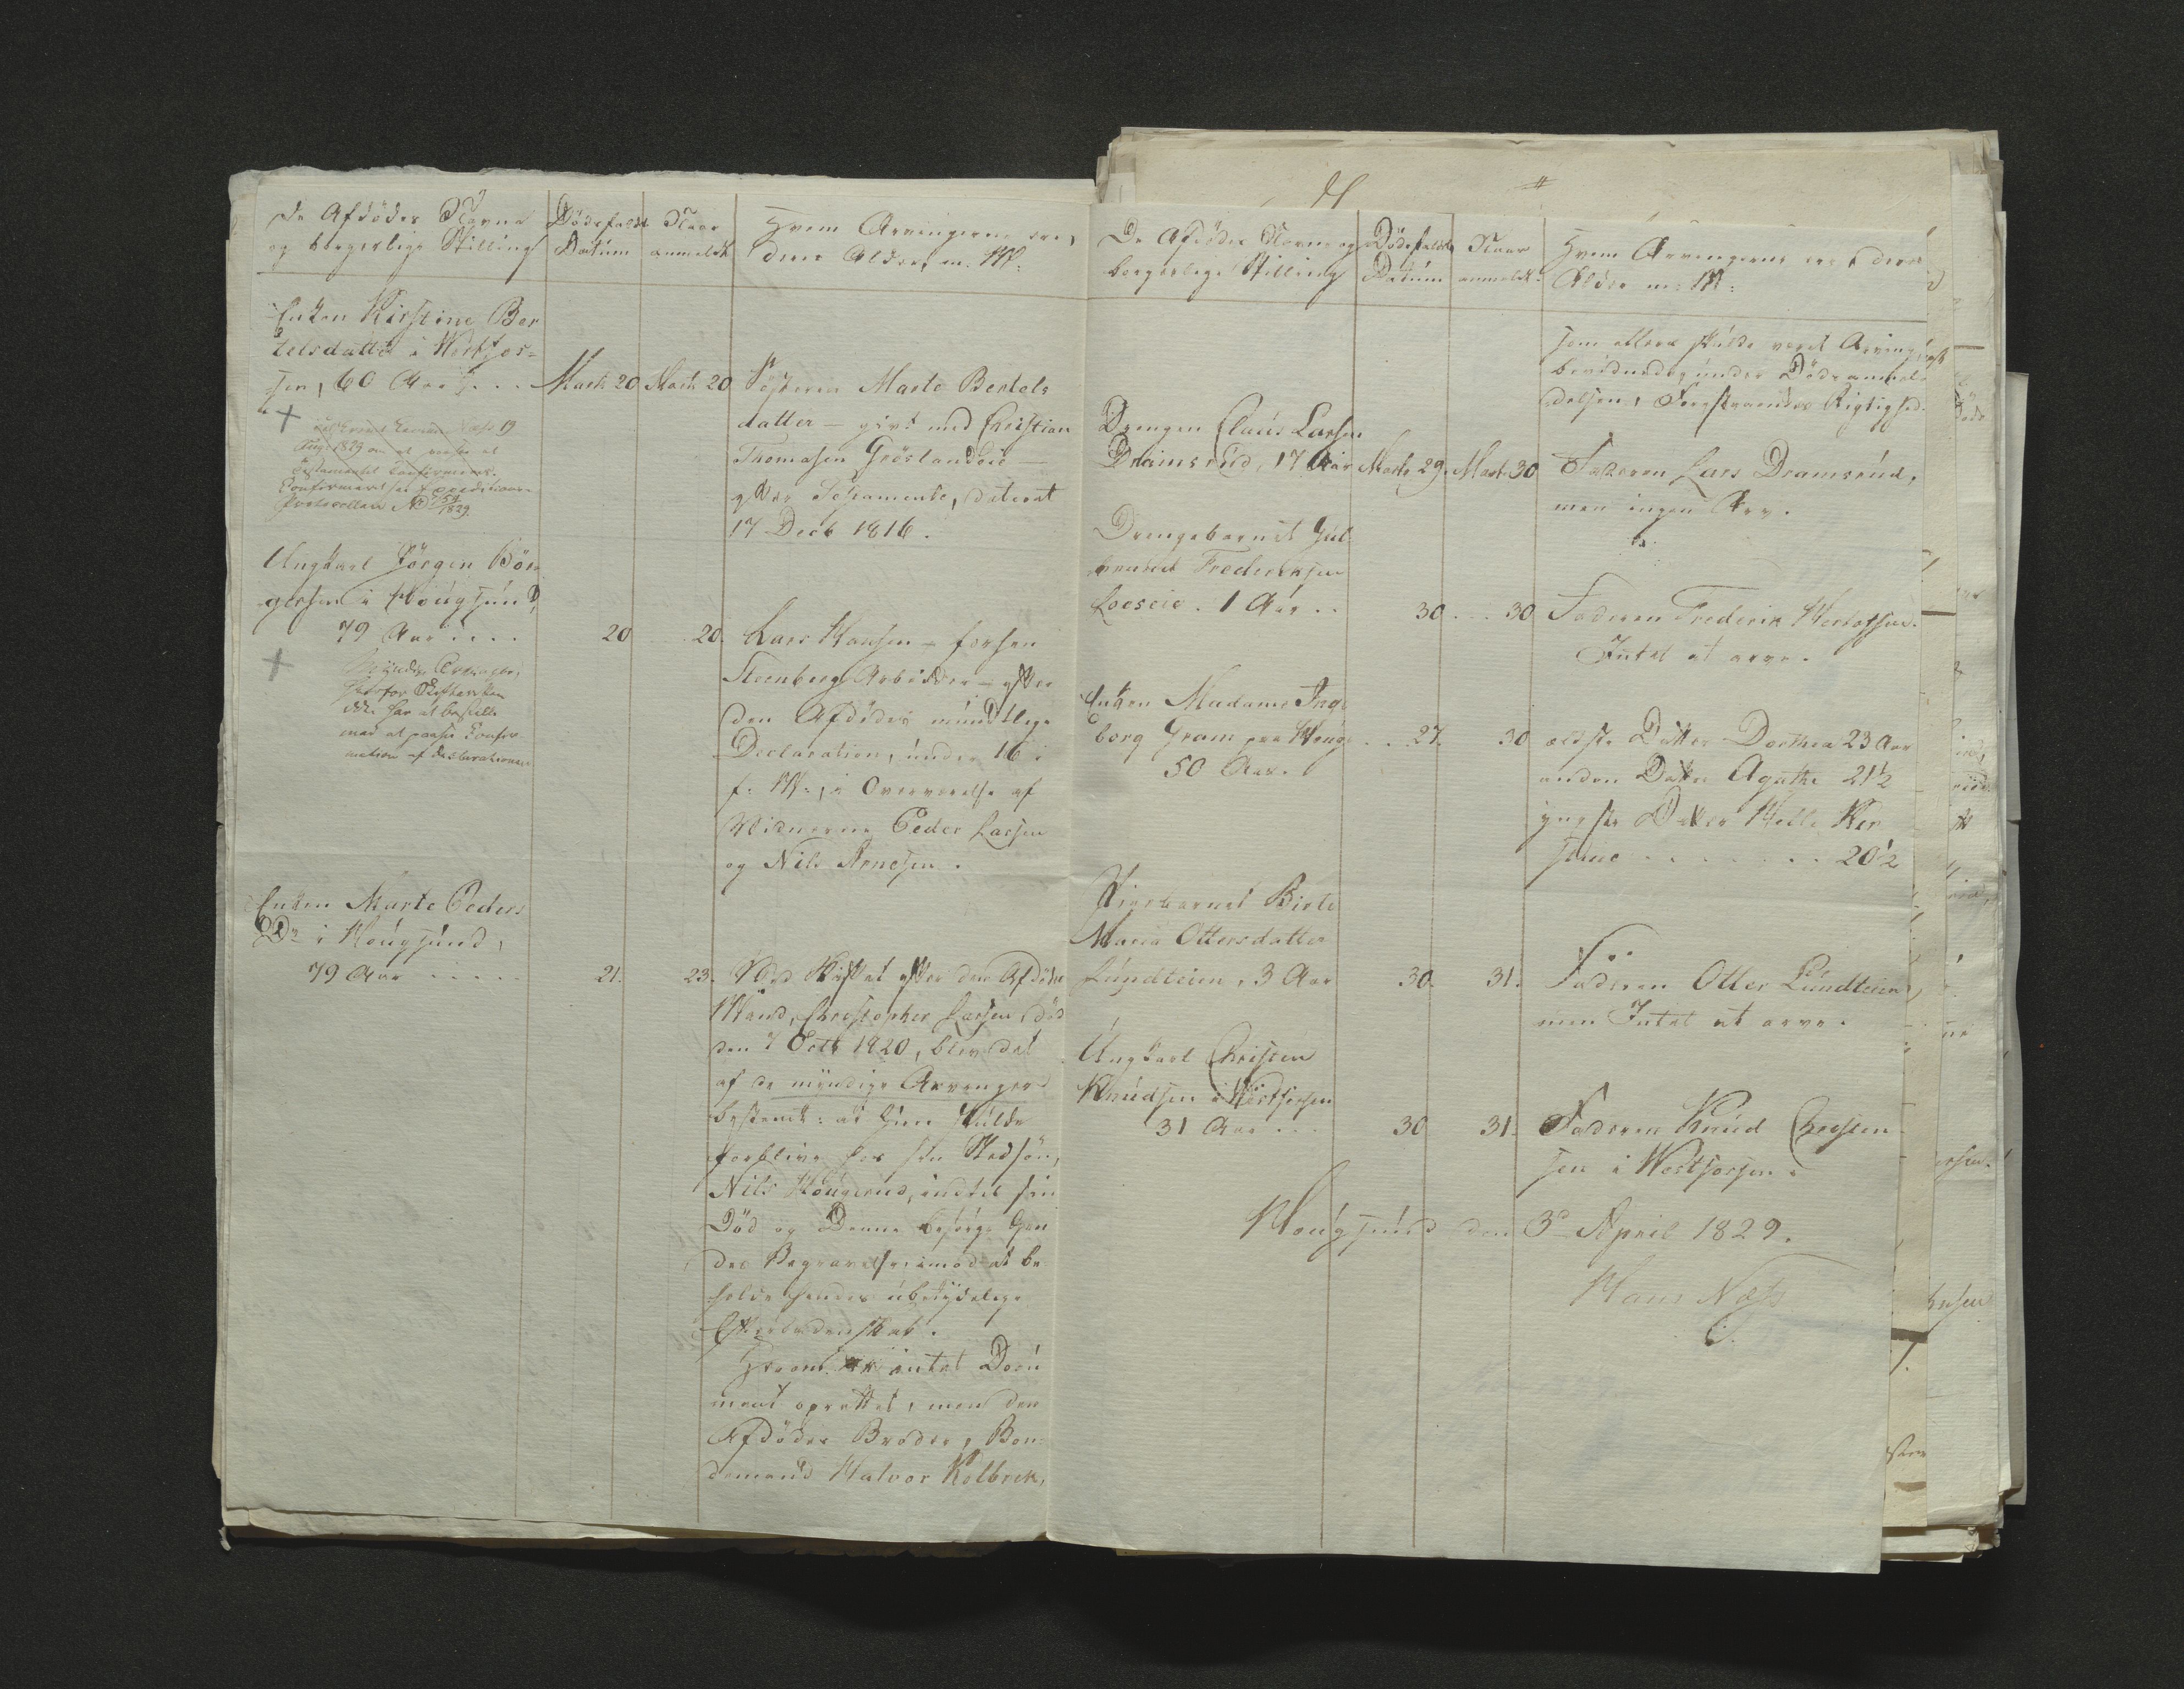 De Afdödes Navne
og borgerlige Stilling
Dödsfaldets
Datum
Naar
anmeldt
Hvem Arvingerne ere,
deres Alder, m. M:
Enken Kirstine Ber
telsdatter i Westfos-
sen, 60 Aar . . . Marts 20 Marts 20
Söstren Marte Bertels
datter – givt med Christian
Thomasen Gröslandeie –
efter Testamente, dateret
17 Decb 1816.
Testamentet confirmeret.
Confirmeret see Expeditions-
Protocollen No 54
1829.
Ungkarl Jörgen Bör
gersen i Hougsund,
79 Aar . . . . 20 . . 20.
Lars Hansen – forhen
Steenberg Arbeider – efter
den Afdödes mundtlige
Declaration, under 16 i
f: M:, i Overværelse af
Vidnerne Peder Larsen
og Nils Arnesen.
Myndige Arvinger,
hvorfor Skifteretten
ikke har at bestille
med at paasee Confir
mation af Declarationen
Enken Marte Peders
Dr i Hougsund,
79 Aar . . . . . 21. 23.
Ved Skiftet efter den Afdödes
Mand, Christopher Larsen, död
den 7 Octb 1820, blev det
af de myndige Arvinger
bestemt: at hun skulde
forblive hos sin Stedsön,
Nils Hougerud, indtil sin
Död og Denne besörge hen
des Begravelse imod at be
holde hendes ubetydelige
Efterladenskab.
Herom er intet Docu
ment oprettet, men den
Afdödes Broder, Bon-
demand Halvor Kolbrek,
De Afdödes Navne og
borgerlige Stilling
Dödsfaldets
Datum
Naar
anmeldt.
Hvem Arvingerne ere, deres
Alder m: M:
som ellers skulde været Arving, har
bevidnet, under Dödsanmel-
delsen, Foregaaendes Rigtighed.
Drengen Claus Larsen
Dramsrud, 17 Aar Marts 29. Marts 30
Faderen Lars Dramsrud,
men ingen Arv.
Drengebarnet Gul
brand Frederiksen
Loeseie. 1 Aar . . 30 . . . 30
Faderen Frederik
Intet at arve.
Enken Madame Inge
borg Gram paa Houg . . 27. 30
50 Aar.
ældste Datter Dorthea 23 Aar
anden Datter Agathe 21½
yngste Datter Helle Kir
stine . . . . . . . . 20½
Pigebarnet Birte
Maria Ottersdatter
Lundteien, 3 Aar 30. 31.
Faderen Otter Lundteien,
men Intet at arve.
Ungkarl Christen
Knudsen i Westfossen
31 Aar . . . 30 31.
Faderen Knud Christen
sen i Westfossen.
Hougsund den 3d April 1829.
Hans Næss